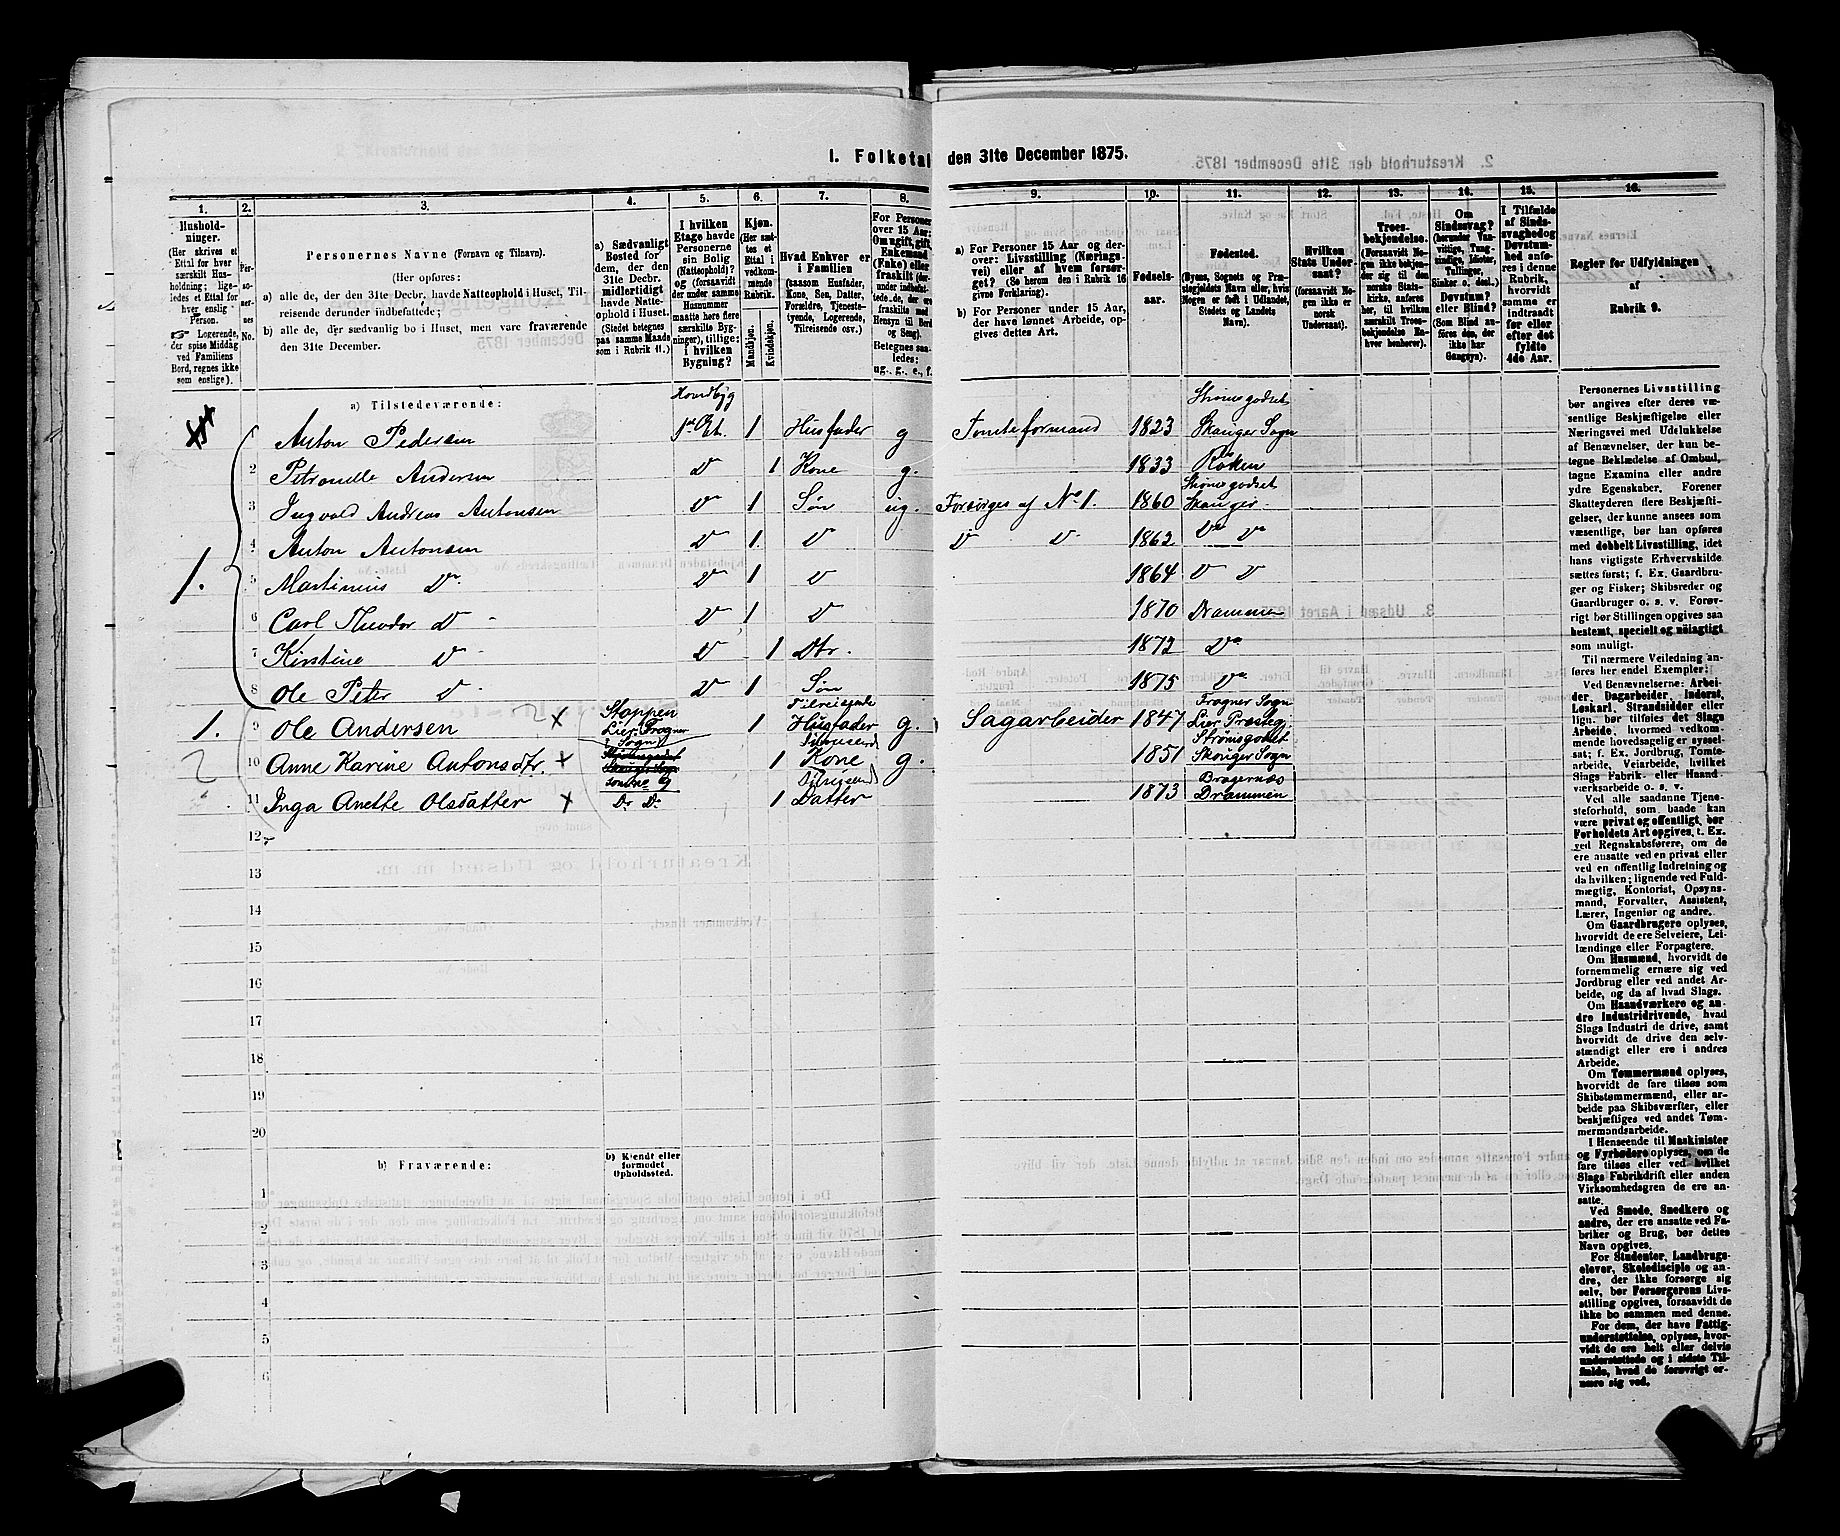 1. Folketal den 31te December 1875.
1. 2. 3. 4. 5. 6. 7. 8. 9. 10. 11. 12. 13. 14. 15. 16.
Husholdninger.
(Her skrives et
Ettal for hver
særskilt Husholdning;
ligeledes et Ettal for
hver enslig
Person.
Logerende,
der spise Middag
ved Familiens
Bord, regnes ikke
som enslige).
Personernes No.
Personernes Navne (Fornavn og Tilnavn).
(Her opføres:
a) alle de, der den 31te Decbr. havde Natteophold i Huset, Tilreisende derunder indbefattede;
b) alle de, der sædvanlig bo i Huset, men vare fraværende
den 31te December.)
a) Sædvanligt
Bosted for
dem, der den
31te Decbr.
midlertidigt
havde Natteophold i Huset.
(Stedet betegnes
paa samme Maade
som i Rubrik 11.)
I hvilken
Etage havde
Personerne
sin Bolig
(Natteophold)?
og (forsaavidt
der under samme
Husnummer
maatte høre flere
særskilte Bygninger), tillige:
I hvilken
Bygning?
Kjøn.
(Her sættes et
Ettal i
vedkommende
Rubrik.
Mandkjøn.
Kvindekjøn.
Hvad Enhver er
i Familien
(saasom Husfader,
Kone, Søn, Datter,
Forældre, Tjenestetyende, Logerende,
Tilreisende osv.)
For Personer
over 15 Aar:
Om ugift, gift,
Enkemand
(Enke) eller
fraskilt
Betegnes saaledes:
ug., g., e., f.
a) For Personer 15 Aar og derover: Livsstilling (Næringsvei) eller af hvem forsørget? (Se herom den i Rubrik 16
givne Forklaring).
b) For Personer under 15 Aar,
der have lønnet Arbeide, opgives dettes Art.
Fødselsaar.
Fødested.
(Byens, Sognets og Præstegjeldets Navn eller, hvis
Nogen er født i Udlandet,
Stedets og Landets
Navn).
Hvilken
Stats Undersaat?
(forsaavidt Nogen ikke er
norsk
Undersaat).
Troesbekjendelse.
(Forsaavidt
Nogen ikke bekjender sig til den
norske Statskirke, anføres
her, til hvilken
særskilt Troesbekjendelse Enhver henhører).
Om
Sindssvag?
(herunder Vanvittige, Tungsindige, Idioter,
Tullinger,
Sinker o. desl.)
Døvstum?
eller Blind?
(Som Blind anføres den, der
ikke har
Gangsyn).
I Tilfælde
af Sindssvaghed og
Døvstumhed anføres
i denne
Rubrik,
hvorvidt
samme er
indtraadt
før eller
efter det
fyldte
4de Aar.
Regler for Udfyldningen
af
Rubrik 9.
a) Tilstedeværende:
1 Anton Pedersen 1ste Et. 1 Husfader g Tomteformand 1823 Strømsgodset Skauger Sogn
2 Petronelle Andersen D 1 Kone g. 1833 Røken
3 Ingvald Andreas Antonsen D 1 Søn ug. Forsørges af No 1. 1860 Strømsgodset Skauger
4 Anton Antonsen D 1 D D D 1862 Do Do
1. 5 Martinius Do D 1 D 1864 D D
6 Carl Theodor D D 1 D 1870 Drammen
7 Kirstine D D 1 Dtr. 1872 Do
8 Ole Peter D D 1 Søn 1875 Do
1. 9 Ole Andersen x Stoppen Lier, Frogner Sogn 1 Tilreisende Husfader g. Sagarbeider 1847 Frogner Sogn Lier Prestegj
10 Anne Karine Antonsdtr. x 1 Tilreisende Kone g. 1851 Strømsgodset Skouger Sogn
11 Inga Anette Olsdatter x Do Do 1 Tilreisend Datter 1873 Bragernæs Drammen
12
13
14
15
16
17
18
19
20
b) Fraværende:
b) Kjendt eller
formodet
Opholdssted.
1
2
3
4
5
6
Personernes Livsstilling
bør angives efter deres væsentlige Beskjæftigelse eller
Næringsvei med Udelukkelse
af Benævnelser, der kun betegne Beklædelse af Ombud,
tagne Examina eller andre
ydre Egenskaber. Forener
Skatteyderen flere Beskjæftigelser, der kunne ansees som
væsentlige, bør han opføres
med dobbelt Livsstilling, idet
hans vigtigste Erhvervskilde
sættes først; f. Ex. Gaardbruger og Fisker; Skibsreder og
Gaardbruger o. s. v. Forøvrigt bør Stillingen opgives saa
bestemt, specielt og nøiagtigt
som muligt.
Til nærmere Veiledning anføres her endel Exempler:
Ved Benævnelserne: Arbeider, Dagarbeider, Inderst,
Løskarl, Strandsidder eller
lign. bør tilføies det Slags
Arbeide, hvormed vedkommende hovedsagelig er sysselsat; f. Ex. Jordbrug, Tomtearbeide, Veiarbeide, hvilket
Slags Fabrik- eller Haandværksarbeide o. s. v.
Ved alle saadanne Tjenesteforhold, som baade kan
være privat og offentligt, bør
Forholdets Art opgives, t. Ex.
ved Regnskabsførere, om de
ere ansatte ved en privat eller
ved en offentlig Indretning og
da hvilken; lignende ved Fuldmægtig, Kontorist, Opsynsmand, Forvalter, Assistent,
Lærer, Ingeniør og andre.
Om Gaardbrugere oplyses,
hvorvidt de ere Selveiere, Leilændinge eller Forpagtere.
Om Husmænd, hvorvidt de
fornemmelig ernære sig ved
Jordbrug eller ved andet Arbeide, og da af hvad Slags.
Om Haandværkere og andre Industridrivende, hvad
Slags Industri de drive, samt
hvorvidt de drive den selvstændigt eller ere i andres
Arbeide.
Om Tømmermænd oplyses,
hvorvidt de fare tilsøs som
Skibstømmermænd, eller arbeide paa Skibsværfter, eller
beskjæftiges ved andet Tømmermandsarbeide.
I Henseende til Maskinister
og Fyrbødere oplyses, om de
fare tilsøs eller ved hvilket
Slags Fabrikdrift eller anden
Virksomhedsgren de ere ansatte.
Ved Smede, Snedkere og
andre, der ere ansatte ved Fabriker og Brug, bør dettes
Navn opgives.
For Studenter, Landbrugselever, Skoledisciple og andre, der ikke forsørge sig
selv, bør Forsørgerens Livsstilling opgives, forsaavidt de
ikke bo sammen med denne.
For dem, der have Fattigunderstøttelse, oplyses, hvorvidt de ere helt eller delvis
understøttede og i sidste Tilfælde, hvad de forøvrigt ernære sig ved.